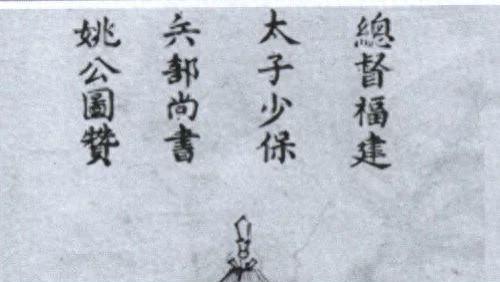 總督福建
太子少保
兵部尚書
姚公圖贊